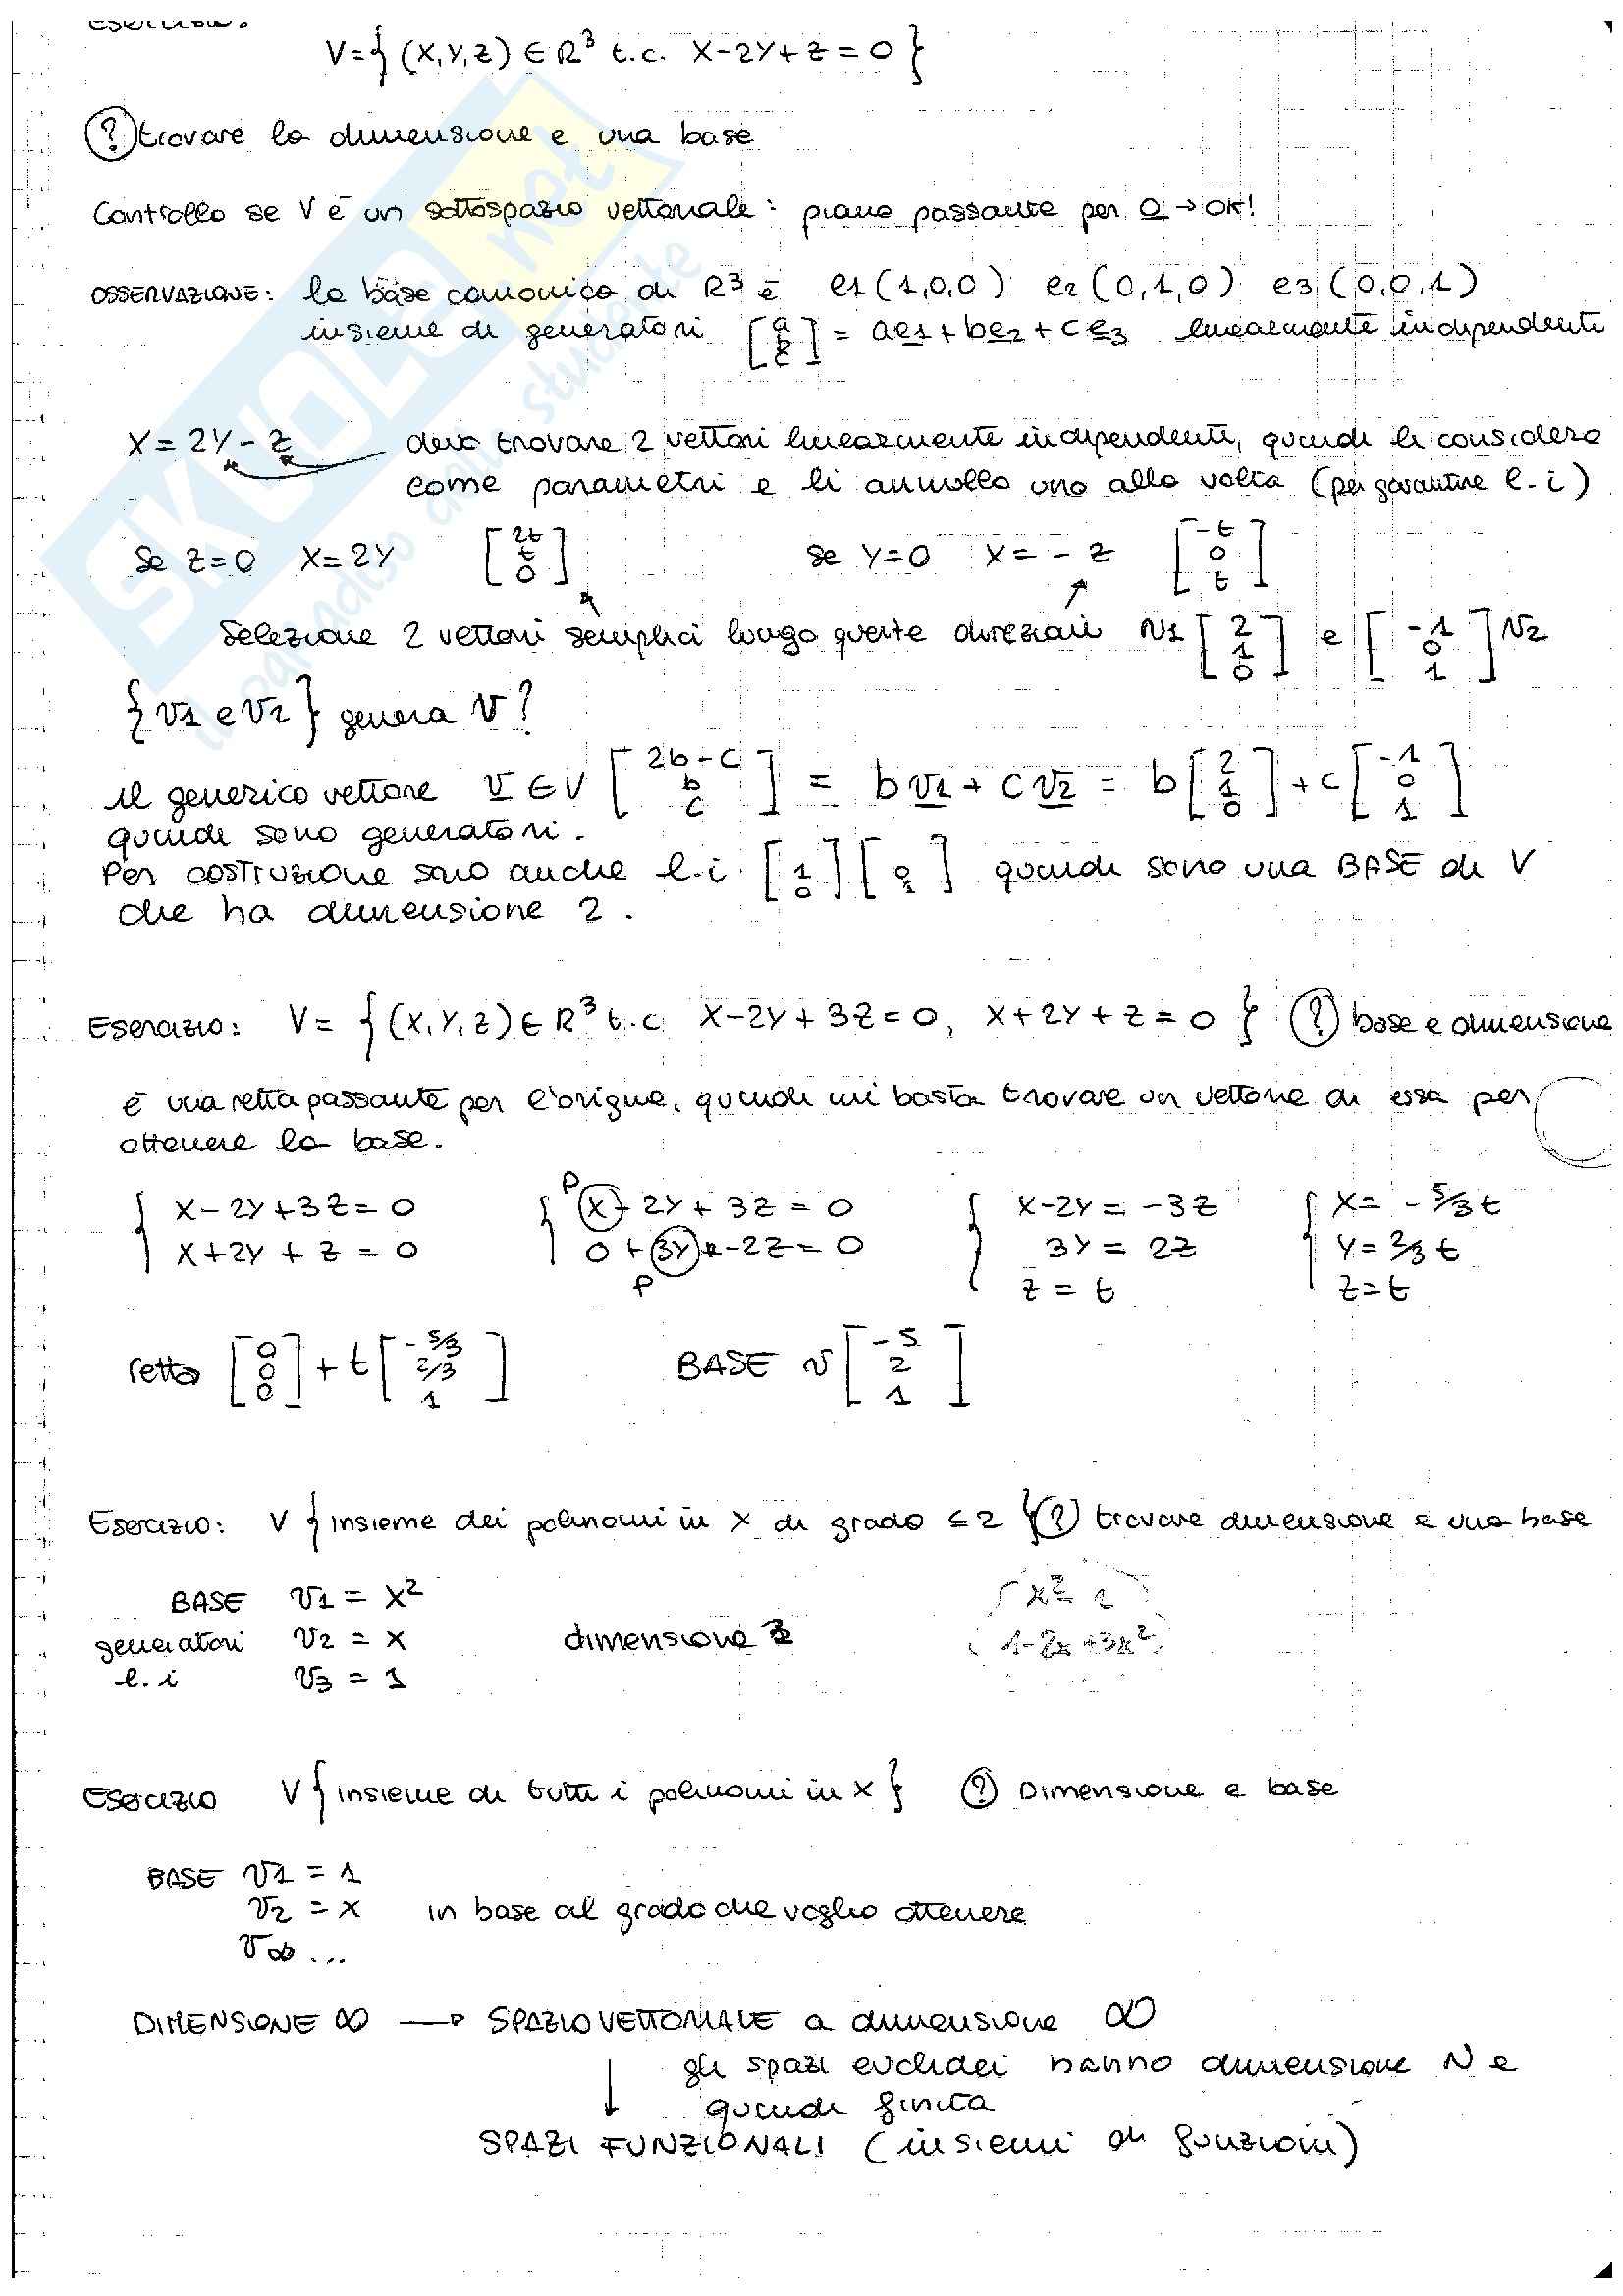 Esercizio:
V={ (X,Y,Z) ∈ R³ t.c. X-2Y+Z=0 }
? trovare la dimensione e una base
Controllo se V è un sottospazio vettoriale: piano passante per 0 → OK!
OSSERVAZIONE: la base canonica di R³ è e1(1,0,0) e2(0,1,0) e3(0,0,1)
insieme di generatori [a b c] = ae1+be2+ce3 linearmente indipendenti
X=2Y-Z devo trovare 2 vettori linearmente indipendenti, quindi li considero
come parametri e li annullo uno alla volta (per garantire l.i)
Se Z=0 X=2Y [2t t 0] se Y=0 X=-Z [-t 0 t]
Seleziono 2 vettori semplici lungo queste direzioni v1 [2 1 0] e [-1 0 1] v2
{v1 e v2} genera V?
il generico vettore v ∈ V [2b-c b c] = bv1+cv2 = b[2 1 0]+c[-1 0 1]
quindi sono generatori.
Per costruzione sono anche l.i [1 0] [0 1] quindi sono una BASE di V
che ha dimensione 2.
Esercizio: V= {(X,Y,Z) ∈ R³ t.c. X-2Y+3Z=0, X+2Y+Z=0 } ? base e dimensione
è una retta passante per l'origine, quindi mi basta trovare un vettore di essa per
ottenere la base.
{ X-2Y+3Z=0 { P X-2Y+3Z=0 { X-2Y=-3Z { X=-5/3t
X+2Y+Z=0 0+3Y-2Z=0 3Y=2Z Y=2/3t
P Z=t Z=t
retta [0 0 0]+t[-5/3 2/3 1] BASE v [-5 2 1]
Esercizio: V { insieme dei polinomi in X di grado ≤2 } ? trovare dimensione e una base
BASE v1 = X²
generatori v2 = X dimensione 3 1-2x+3x²
l.i v3 = 1
Esercizio V { insieme di tutti i polinomi in X } ? Dimensione e base
BASE v1 = 1
v2 = X in base al grado che voglio ottenere
v∞ ...
DIMENSIONE ∞ → SPAZIO VETTORIALE a dimensione ∞
gli spazi euclidei hanno dimensione N e
quindi finita
SPAZI FUNZIONALI (insiemi di funzioni)
SKUOLA.net